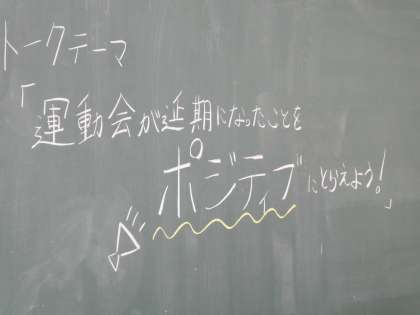 トークテーマ
「運動会が近期になったことを
ポジティブにとらえよう!」